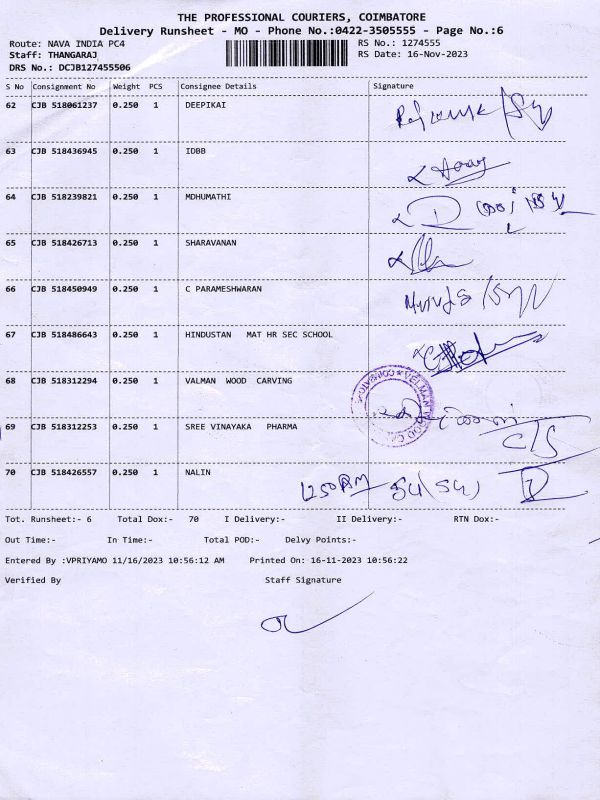 THE PROFESSIONAL COURIERS, COIMBATORE
Delivery Runsheet - MO - Phone No.:0422-3505555 - Page No.:6
Route: NAVA INDIA PC4 RS No.: 1274555
Staff: THANGARAJ RS Date: 16-Nov-2023
DRS No.: DCJB127455506
S No Consignment No Weight PCS Consignee Details Signature
62 CJB 518061237 0.250 1 DEEPIKAI
63 CJB 518436945 0.250 1 IDBB
64 CJB 518239821 0.250 1 MDHUMATHI
65 CJB 518426713 0.250 1 SHARAVANAN
66 CJB 518450949 0.250 1 C PARAMESHWARAN
67 CJB 518486643 0.250 1 HINDUSTAN MAT HR SEC SCHOOL
68 CJB 518312294 0.250 1 VALMAN WOOD CARVING
69 CJB 518312253 0.250 1 SREE VINAYAKA PHARMA
70 CJB 518426557 0.250 1 NALIN
Tot. Runsheet:- 6 Total Dox:- 70 I Delivery:- II Delivery:- RTN Dox:-
Out Time:- In Time:- Total POD:- Delvy Points:-
Entered By :VPRIYAMO 11/16/2023 10:56:12 AM Printed On: 16-11-2023 10:56:22
Verified By Staff Signature